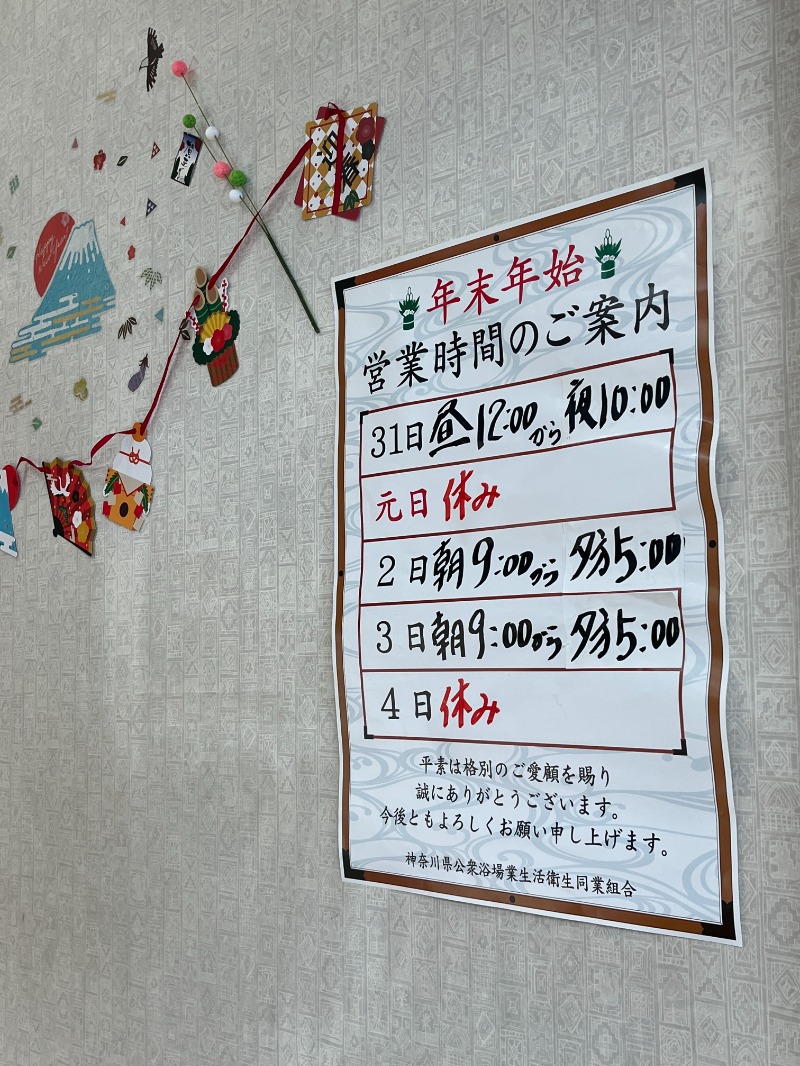 迎春
年末年始
営業時間のご案内
31日 昼12:00から 夜10:00
元日 休み
2日 朝9:00から 夕方5:00
3日 朝9:00から 夕方5:00
4日 休み
平素は格別のご愛顧を賜り
誠にありがとうございます。
今後ともよろしくお願い申し上げます。
神奈川県公衆浴場業生活衛生同業組合